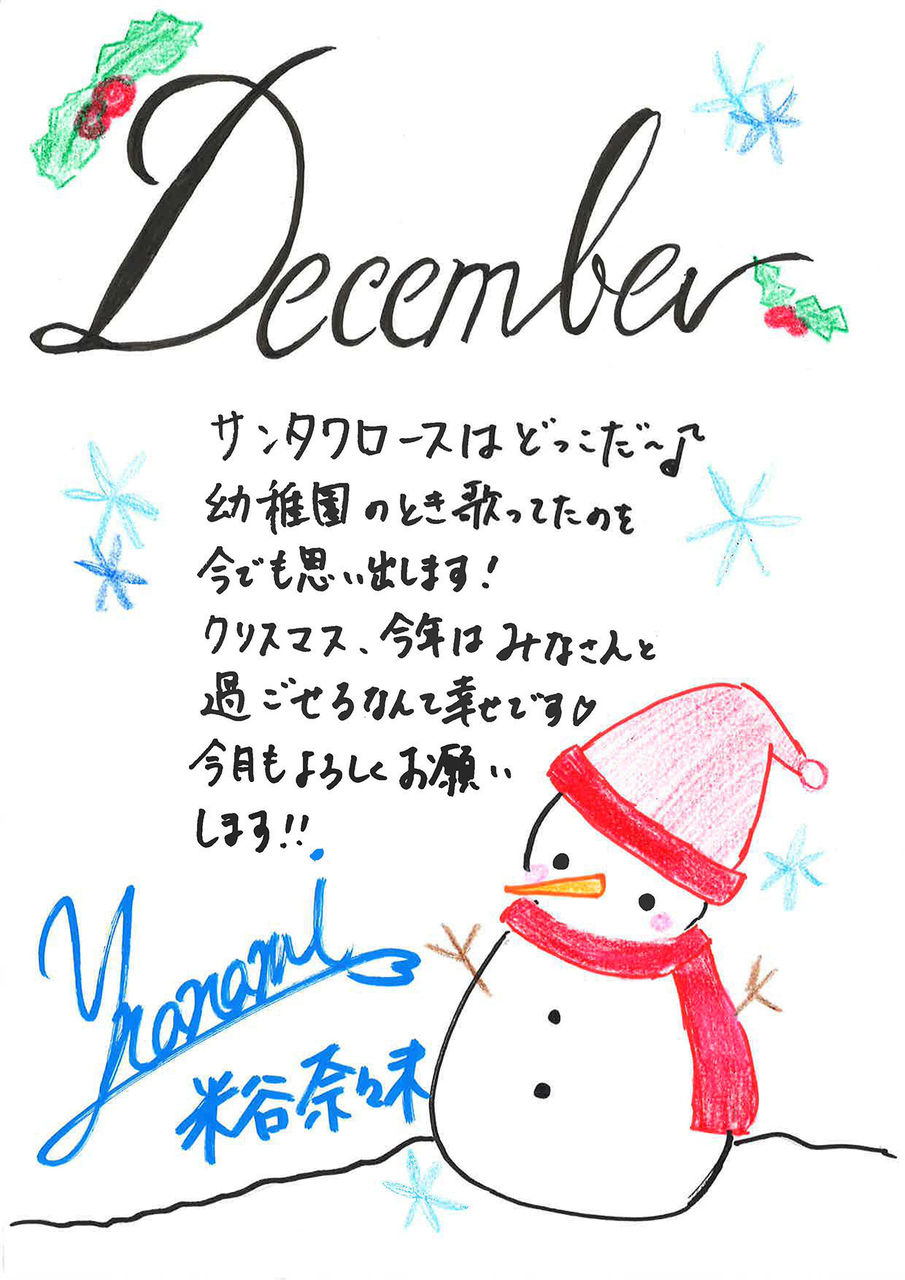 December
サンタクロースはどっこだ〜♪
幼稚園のとき歌ってたのを
今でも思い出します!
クリスマス、今年はみなさんと
過ごせるなんて幸せです♡
今月もよろしくお願い
します!!
Ynanami
米谷奈々未